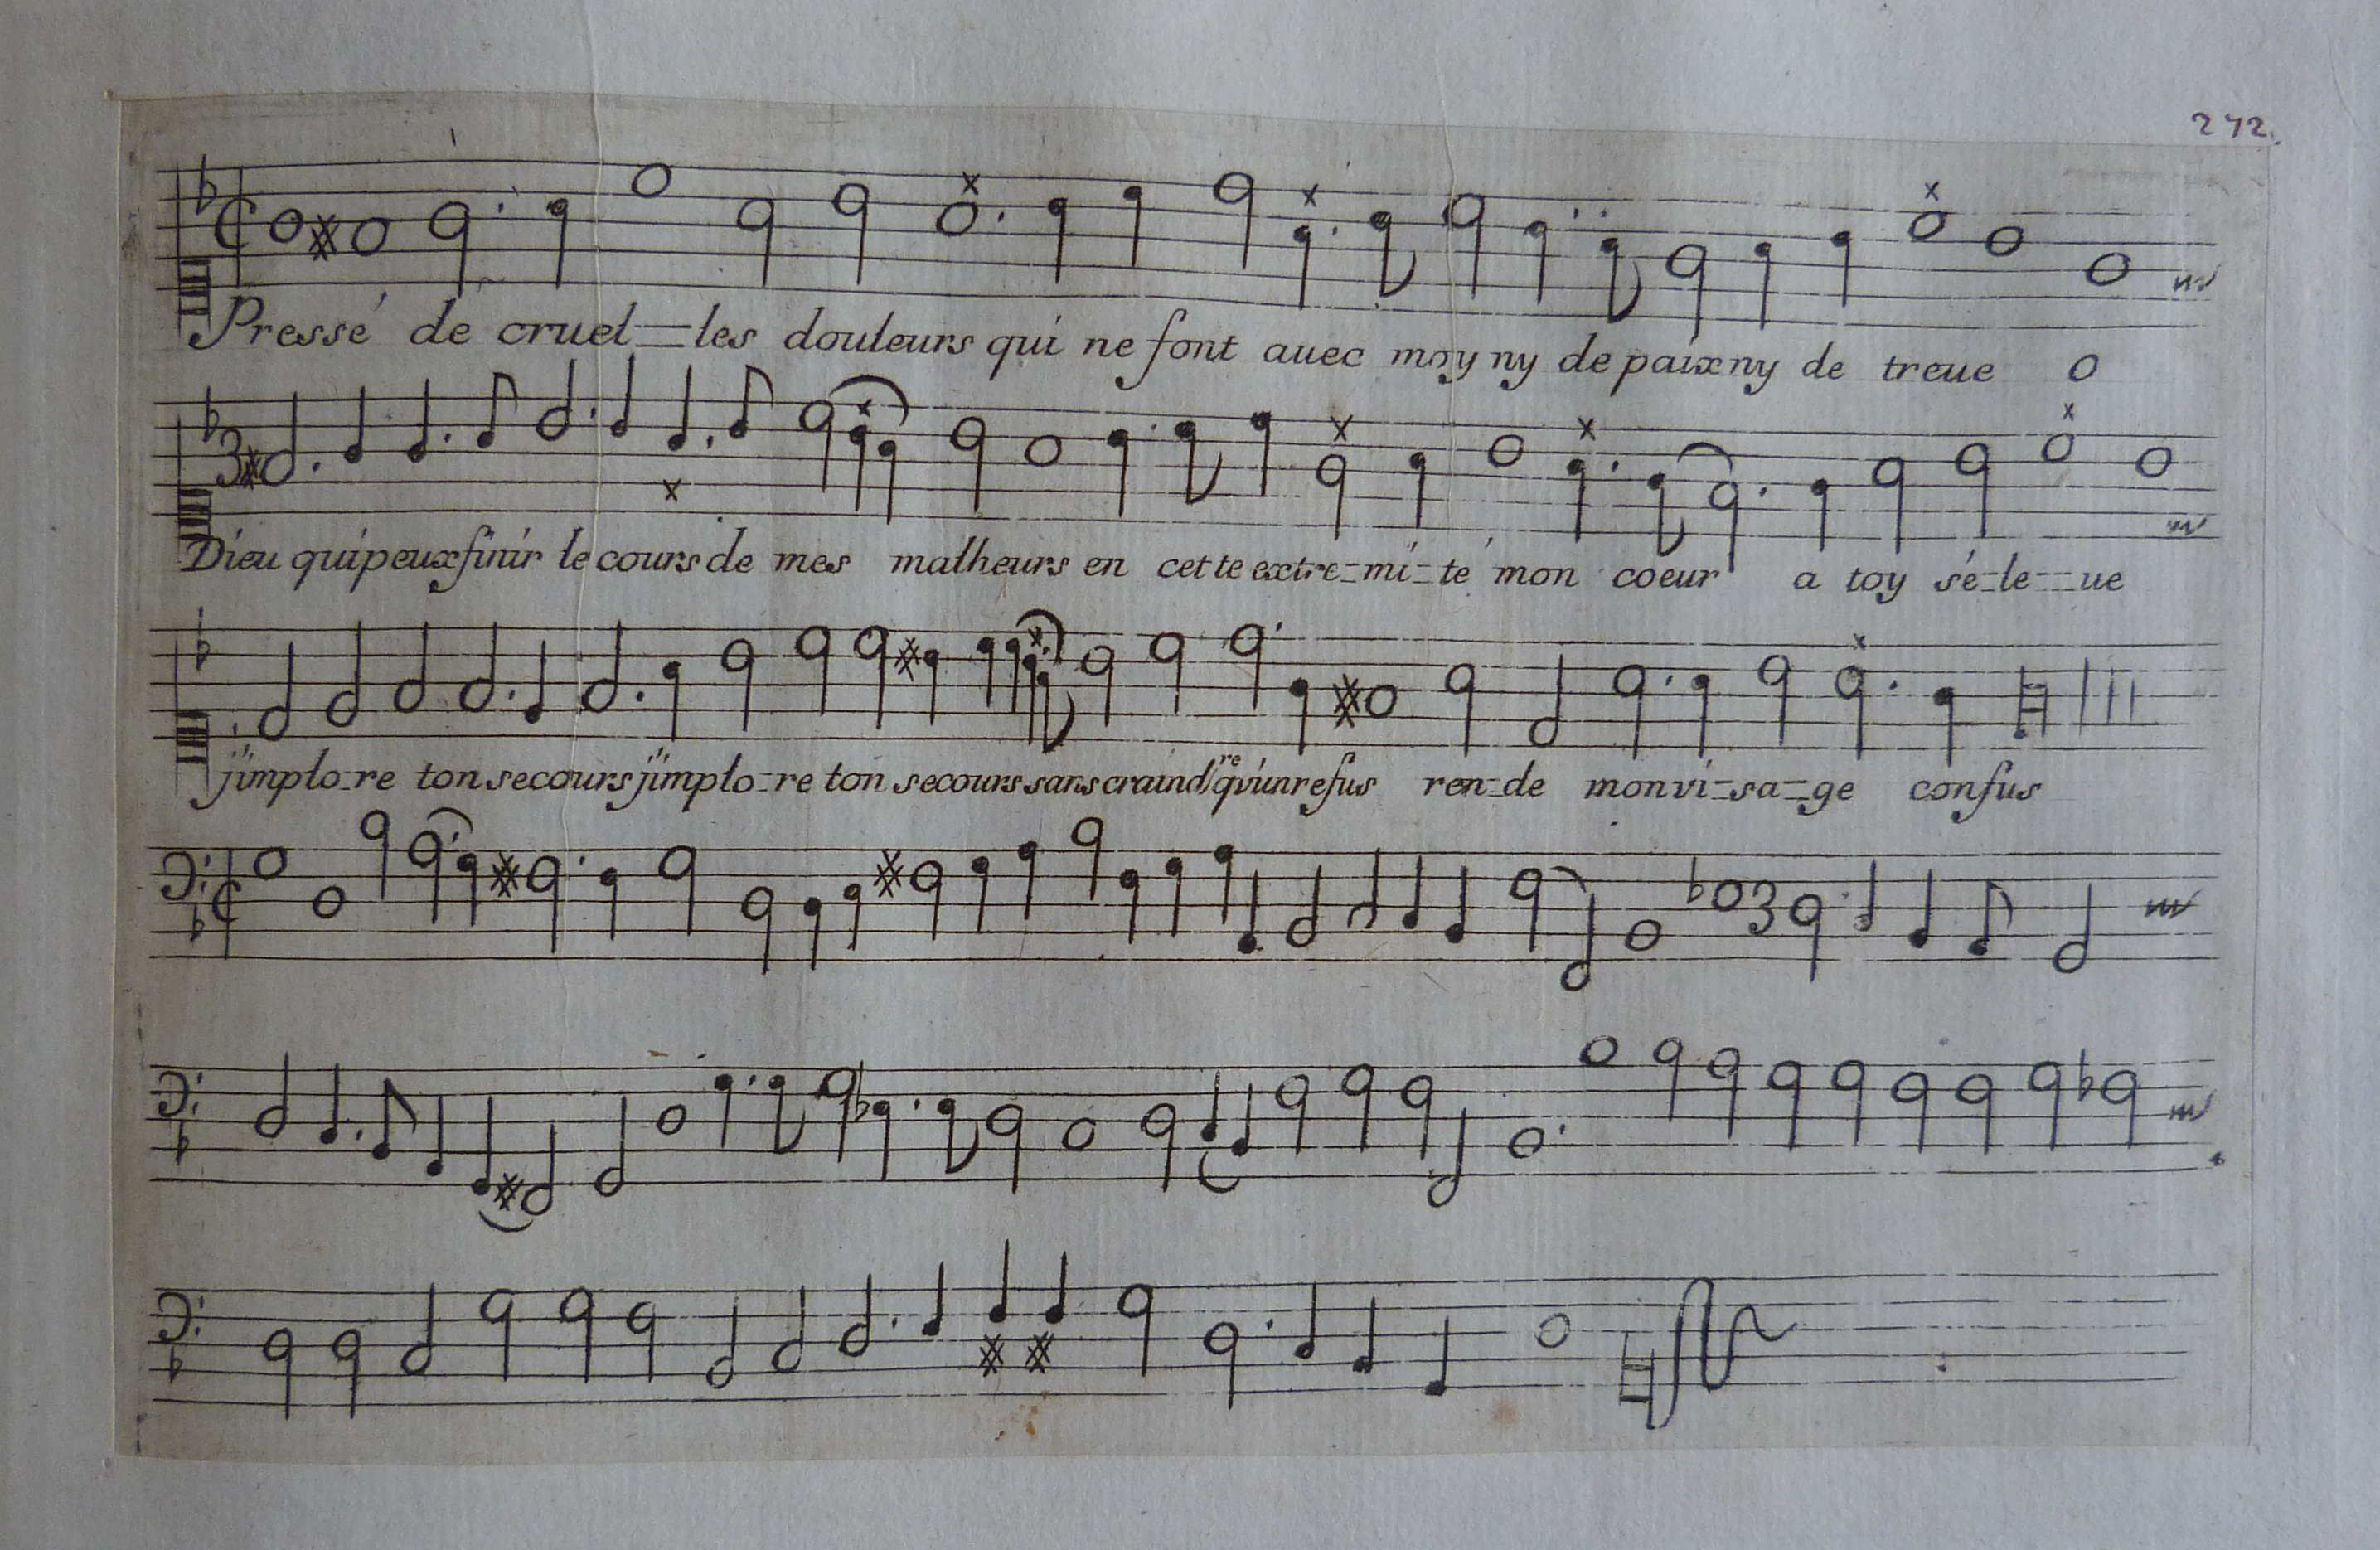 242.
Pressé de cruel-les douleurs qui ne font auec moy ny de paix ny de treue O
3
Dieu qui peux finir le cours de mes malheurs en cette extre-mi-té mon coeur a toy sé-le-ue
j'implo-re ton secours j'implo-re ton secours sans craindre qu'un refus ren-de mon vi-sa-ge confus
3